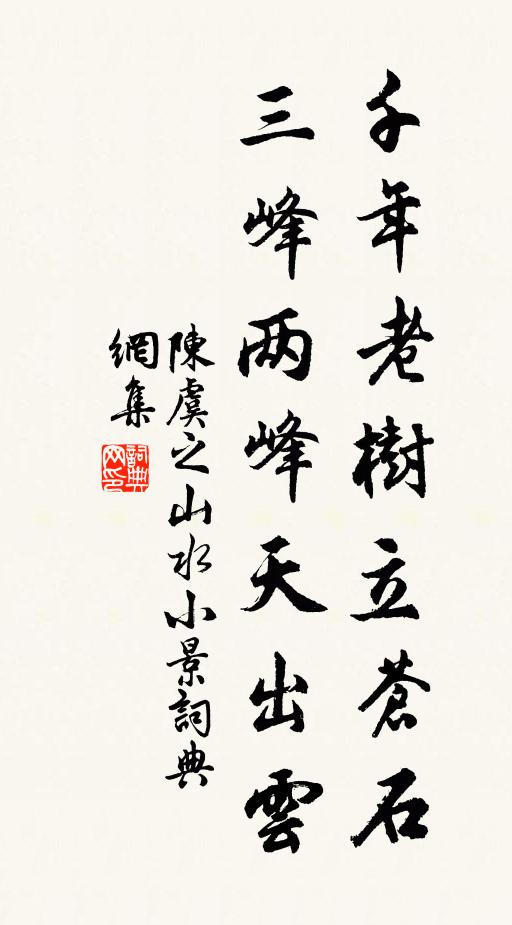 千年老樹立蒼石
三峰两峰天出雲
陳虞之山水小景詞典
網集
詞典网印